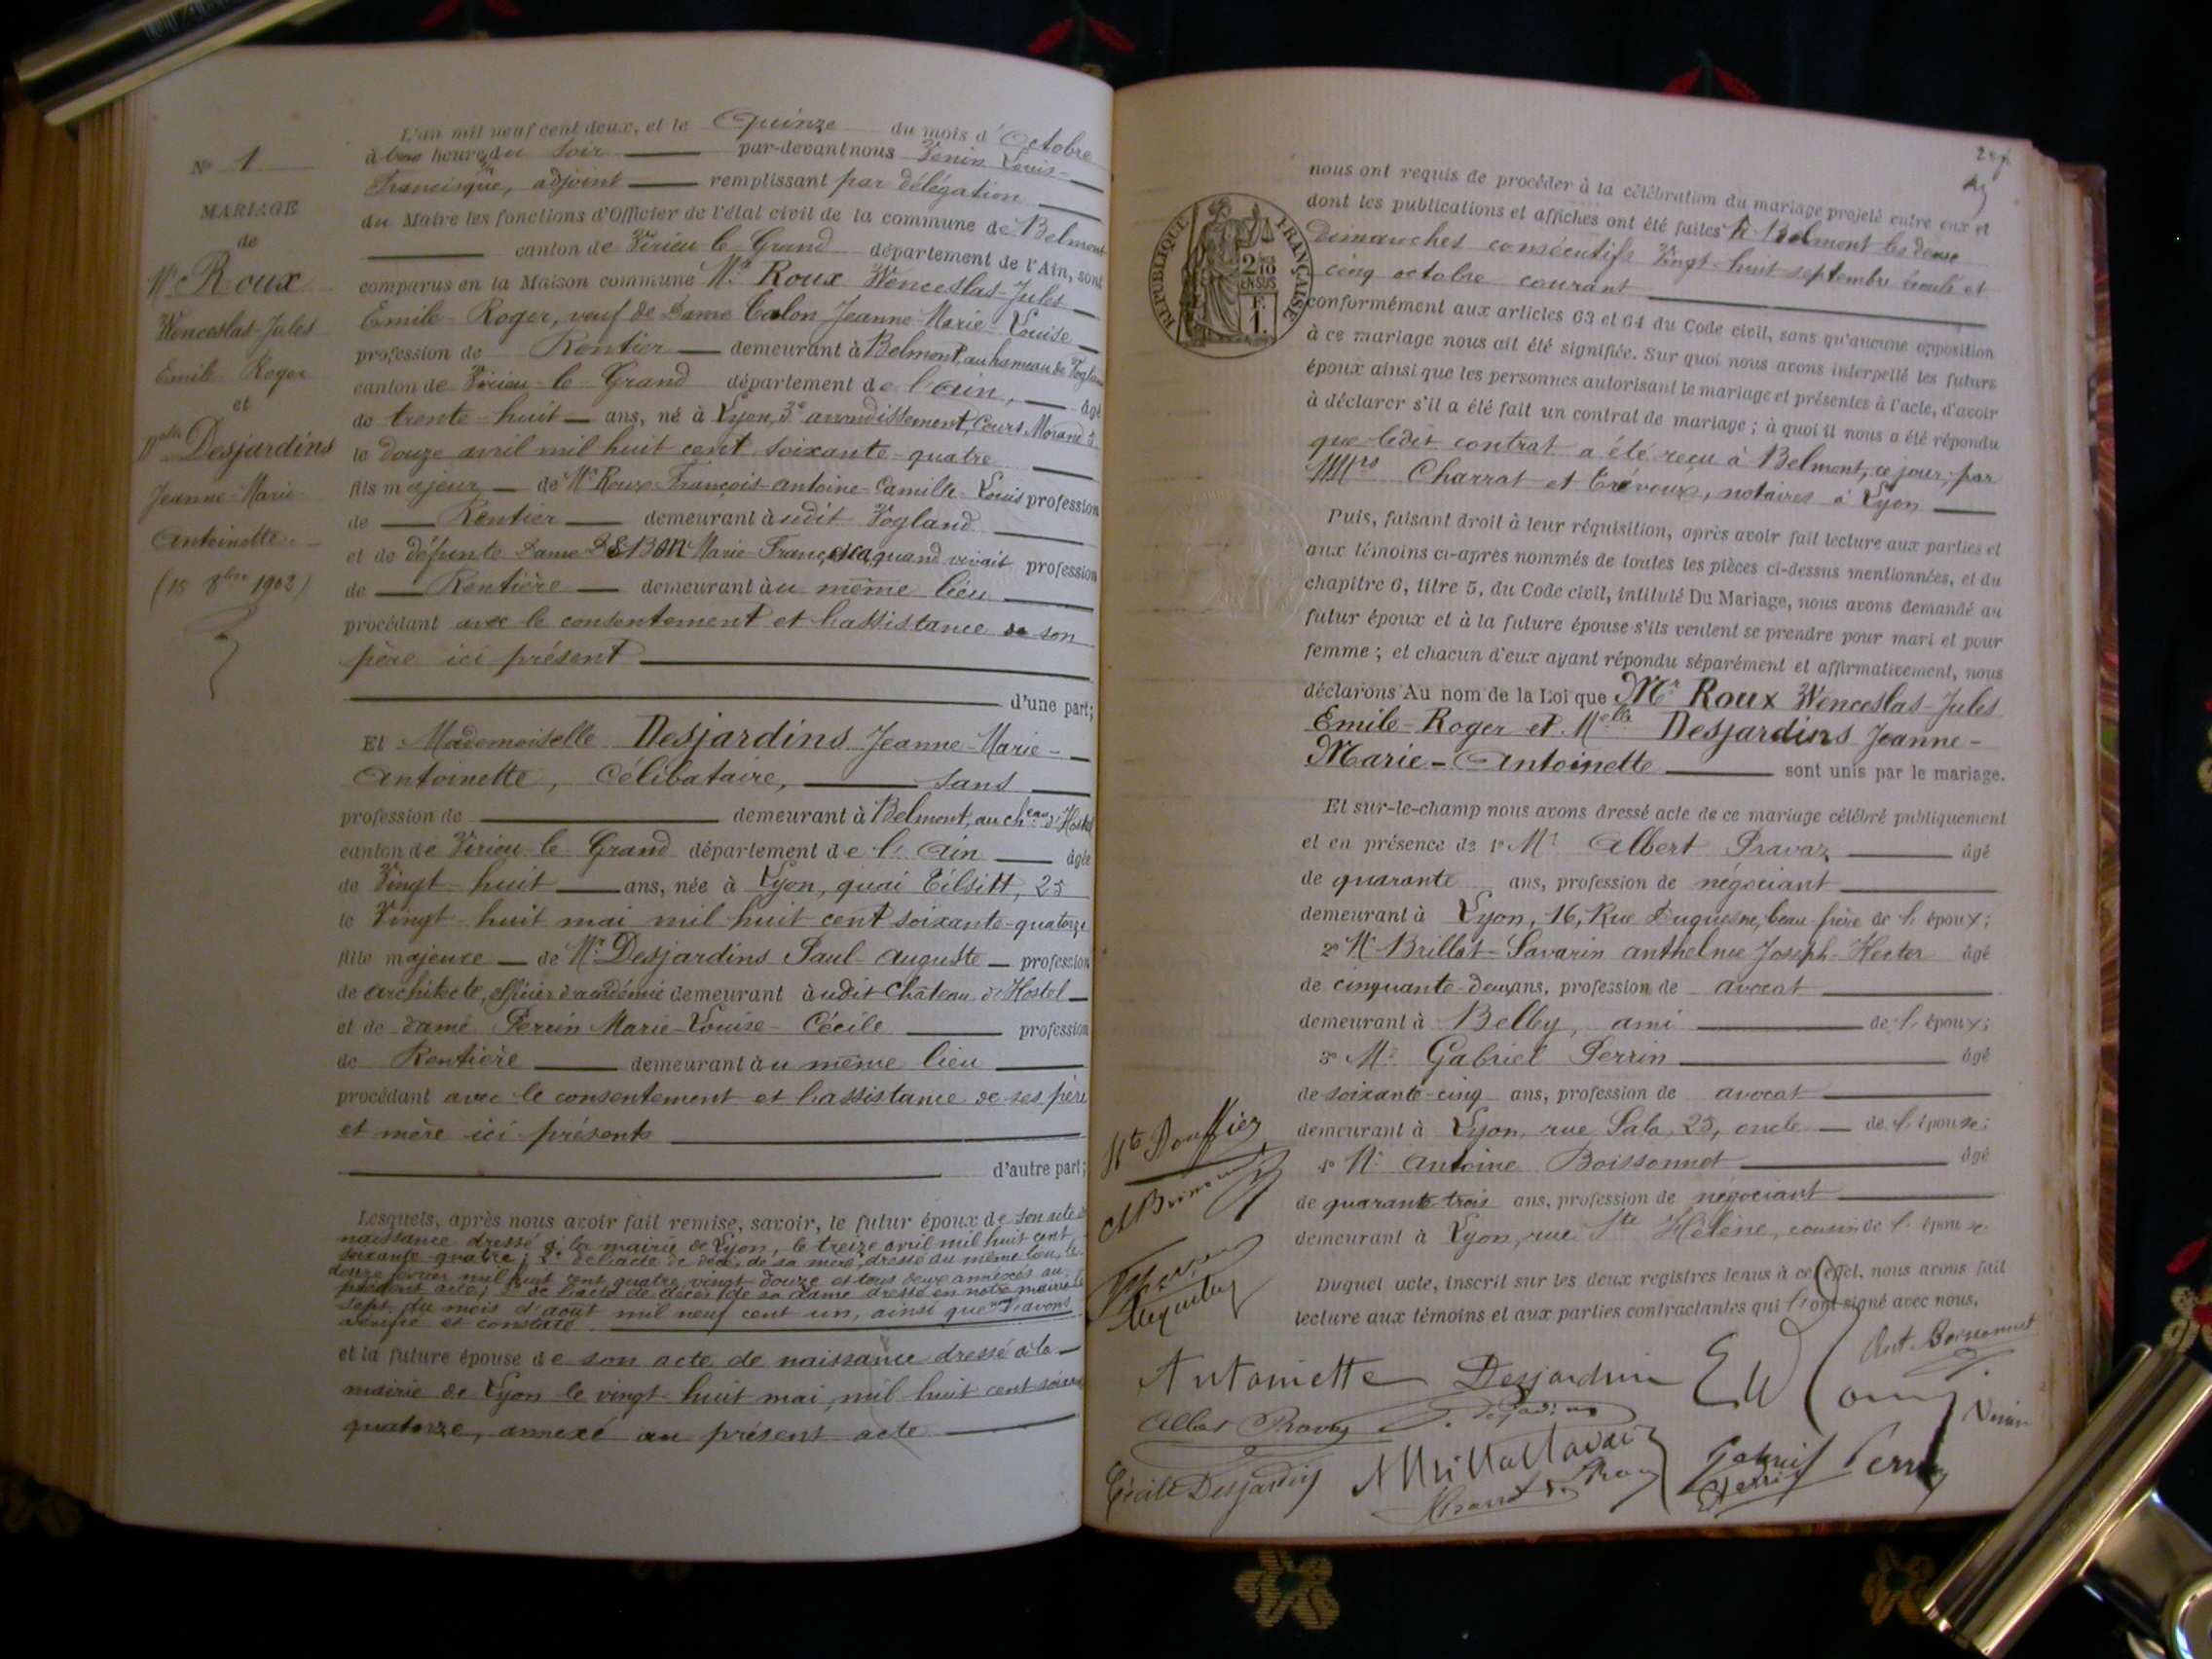 N° 1
MARIAGE
de
Mr Roux
Wenceslas-Jules
Emile Roger
et
Delle Desjardins
Jeanne-Marie
Antoinette.
(15 8bre 1902)
L'an mil neuf cent deux, et le Quinze du mois d'Octobre
à heure du soir par-devant nous Venin Louis-
Francisque, adjoint remplissant par délégation
du Maire les fonctions d'Officier de l'état civil de la commune de Belmont
canton de Virieu le Grand département de l'Ain, sont
comparus en la Maison commune Mr Roux Wenceslas-Jules
Emile-Roger, veuf de Dame Calon Jeanne-Marie-Louise
profession de Rentier demeurant à Belmont, au hameau de Vogland
canton de Virieu-le-Grand département de l'ain, âgé
de trente-huit ans, né à Lyon, 3e arrondissement, Cours Morand 5
le douze avril mil huit cent soixante-quatre
fils majeur de Mr Roux François-Antoine-Camille-Louis profession
de Rentier demeurant à udit Vogland
et de défunte Dame Marie Francisca, quand vivait profession
de Rentière demeurant à u même lieu
procédant avec le consentement et l'assistance de son
père ici présent
d'une part;
Et Mademoiselle Desjardins Jeanne-Marie-
Antoinette, Célibataire, sans
profession de demeurant à Belmont, au cheau d'Hostel
canton de Virieu-le-Grand département de l'Ain âgée
de Vingt-huit ans, née à Lyon, quai Tilsitt, 25
le Vingt-huit mai mil huit cent soixante-quatorze
fille majeure de Mr Desjardins Paul-Auguste profession
de architecte, officier d'académie demeurant à udit Château d'Hostel
et de dame Perrin Marie-Louise-Cécile profession
de Rentière demeurant à u même lieu
procédant avec le consentement et l'assistance de ses père
et mère ici présents
d'autre part;
Lesquels, après nous avoir fait remise, savoir, le futur époux de son acte de
naissance dressé à la mairie de Lyon, le treize avril mil huit cent
soixante quatre; 2° de l'acte de décès de sa mère, dressé au même lieu, le
douze février mil huit cent quatre vingt-douze et tous deux annexés au
présent acte; 3° de l'acte de décès de sa dame dressé en notre mairie le
sept du mois d'août mil neuf cent un, ainsi que ns l'avons
vérifié et constaté
et la future épouse de son acte de naissance dressé à la
mairie de Lyon le vingt-huit mai, mil huit cent soixante
quatorze, annexé au présent acte
nous ont requis de procéder à la célébration du mariage projeté entre eux et
dont les publications et affiches ont été faites à Belmont les deux
Dimanches consécutifs Vingt-huit septembre écoulé et
cinq octobre courant
conformément aux articles 63 et 64 du Code civil, sans qu'aucune opposition
à ce mariage nous ait été signifiée. Sur quoi nous avons interpellé les futurs
époux ainsi que les personnes autorisant le mariage et présentes à l'acte, d'avoir
à déclarer s'il a été fait un contrat de mariage; à quoi il nous a été répondu
que ledit contrat a été reçu à Belmont, ce jour, par
MMrs Charrat et Trévoux, notaires à Lyon
Puis, faisant droit à leur réquisition, après avoir fait lecture aux parties et
aux témoins ci-après nommés de toutes les pièces ci-dessus mentionnées, et du
chapitre 6, titre 5, du Code civil, intitulé Du Mariage, nous avons demandé au
futur époux et à la future épouse s'ils veulent se prendre pour mari et pour
femme; et chacun d'eux ayant répondu séparément et affirmativement, nous
déclarons Au nom de la Loi que Mr Roux Wenceslas-Jules
Emile-Roger et Melle Desjardins Jeanne-
Marie-Antoinette sont unis par le mariage.
Et sur-le-champ nous avons dressé acte de ce mariage célébré publiquement
et en présence de 1° Mr Albert Pravaz âgé
de quarante ans, profession de négociant
demeurant à Lyon, 16, Rue Duquesne, beau-frère de l'époux;
2° Mr Brillat-Savarin Anthelme Joseph-Hector âgé
de cinquante-deux ans, profession de avocat
demeurant à Belley, ami de l'époux;
3° Mr Gabriel Perrin âgé
de soixante-cinq ans, profession de avocat
demeurant à Lyon, rue Sala, 25, oncle de l'épouse;
4° Mr Antoine Boissonnet âgé
de quarante-trois ans, profession de négociant
demeurant à Lyon, rue Ste Hélène, cousin de l'épouse
Duquel acte, inscrit sur les deux registres tenus à cet effet, nous avons fait
lecture aux témoins et aux parties contractantes qui l'ont signé avec nous.
RÉPUBLIQUE FRANÇAISE
2/10 EN SUS
1 F.
Antoinette Desjardins
Ant. Boissonnet
Albert Pravaz
P. Desjardins
Venin
Cécile Desjardins
Gabriel Perrin